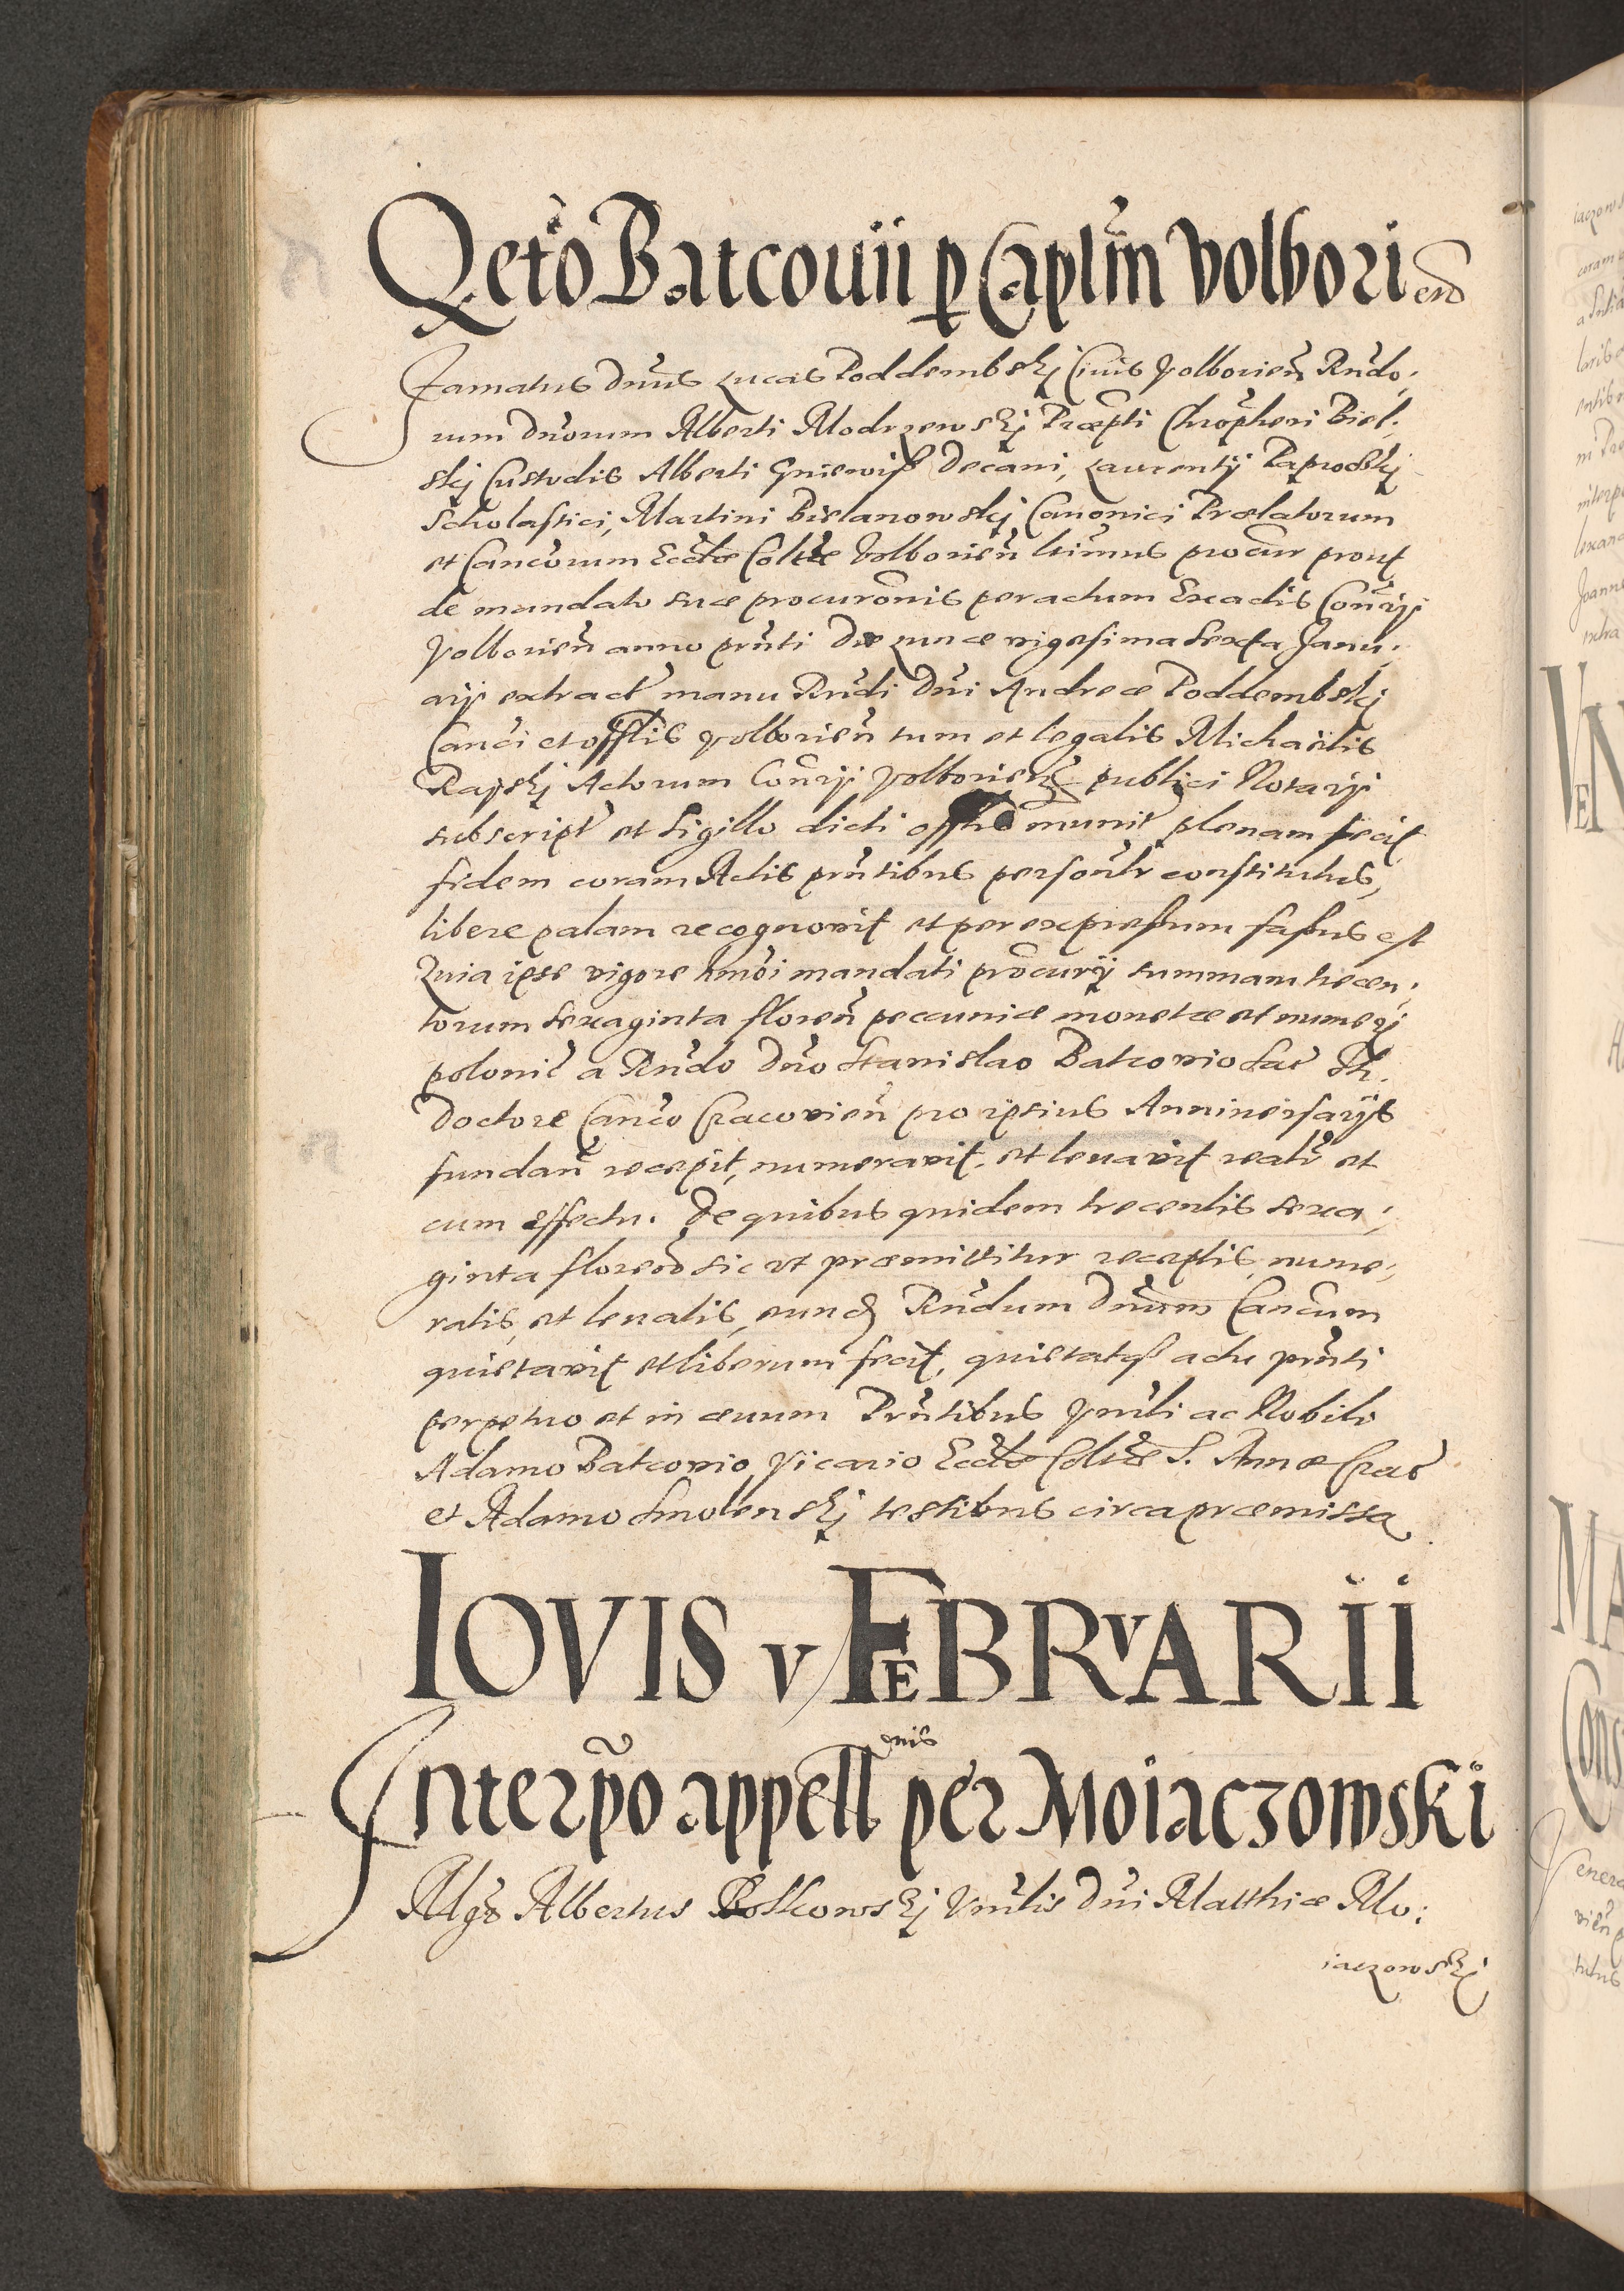 Qeto Batcouii p Caplm Volbori en
Famatus Dnus Lucas Poddembskj Ciuis Volborien Rndo,
rum Dnorum Alberti Modrzewskj Præpti Chrophori Biel,
skj Custodis Alberti Gniewiß Decani, Laurentij Paprockj
Scholastici, Martini Bielanowskj Canonici Prælatorum
et Cancorum Eccliæ Coltæ Volborien ltimus procur prout
de mandato suæ procuronis peractum Ex actis Conrij
Volborien anno prnti Die Lunæ vigesima sexta Janu,
arij extract manu Rndi Dni Andreæ Poddembskj
Canci et offtis Volborien tum et legalis Michaëlis
Rapskj Actorum Conrij Volborien publici Notarij
subscript et Sigillo dicti offtis munit plenam fecit
fidem coram Actis prntibus personlr constitutus,
libere palam recognovit et per expressum fassus est
Quia ipse vigore hmoi mandati procurij summam trecen,
torum sexaginta floren pecuniæ monetæ et numeri
polonic a Rndo Dno Stanislao Batcovio Sac Th.
Doctore Canco Cracovien pro ipsius Anniuersarijs
fundan recepit, numeravit, et leuavit realr et
cum effectu. De quibus quidem trecentis sexa,
ginta floren sic ut præmittitur receptis, nume,
ratis, et leuatis, eund Rndum Dnum Cancum
quietavit et liberum fecit, quietatq actu prnti
perpetuo et in æuum Prntibus Vnrli ac Nobili
Adamo Batcovio Vicario Eccliæ Coltæ S. Annæ Crac
et Adamo Smolenskj testibus circa præmissa
IOVIS V FEBRVARII
Interpo appellnis per Moiaczowski
Mgr Albertus Boskowskj Vnrlis Dni Matthiæ Mo:
iaczowskj